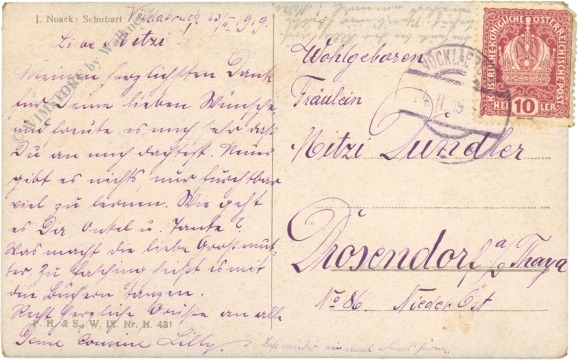 J. Nosek: Schubert
Vöcklabruck 23/II 1919
Liebe Mitzi
Meinen herzlichsten Dank
für Deine lieben Wünsche
und freute es mich sehr daß
Du an mich dachtest. Neues
gibt es nichts nur furchtbar
viel zu lernen. Wie geht
es Dir Onkel u. Tante?
Was macht die liebe Großmut-
ter. Zu Fasching heißt es mit
den Büchern tanzen.
Recht herzliche Grüße an alle
Deine Cousine Lilly.
F. H. & S., W. IX. Nr. H. 431
Wohlgeboren
Fräulein
Mitzi
Drosendorf a/d Thaya
No 86. Nieder Öst
KAISERLICHE KÖNIGLICHE ÖSTERREICHISCHE POST
HELLER 10
VÖCKLABRUCK